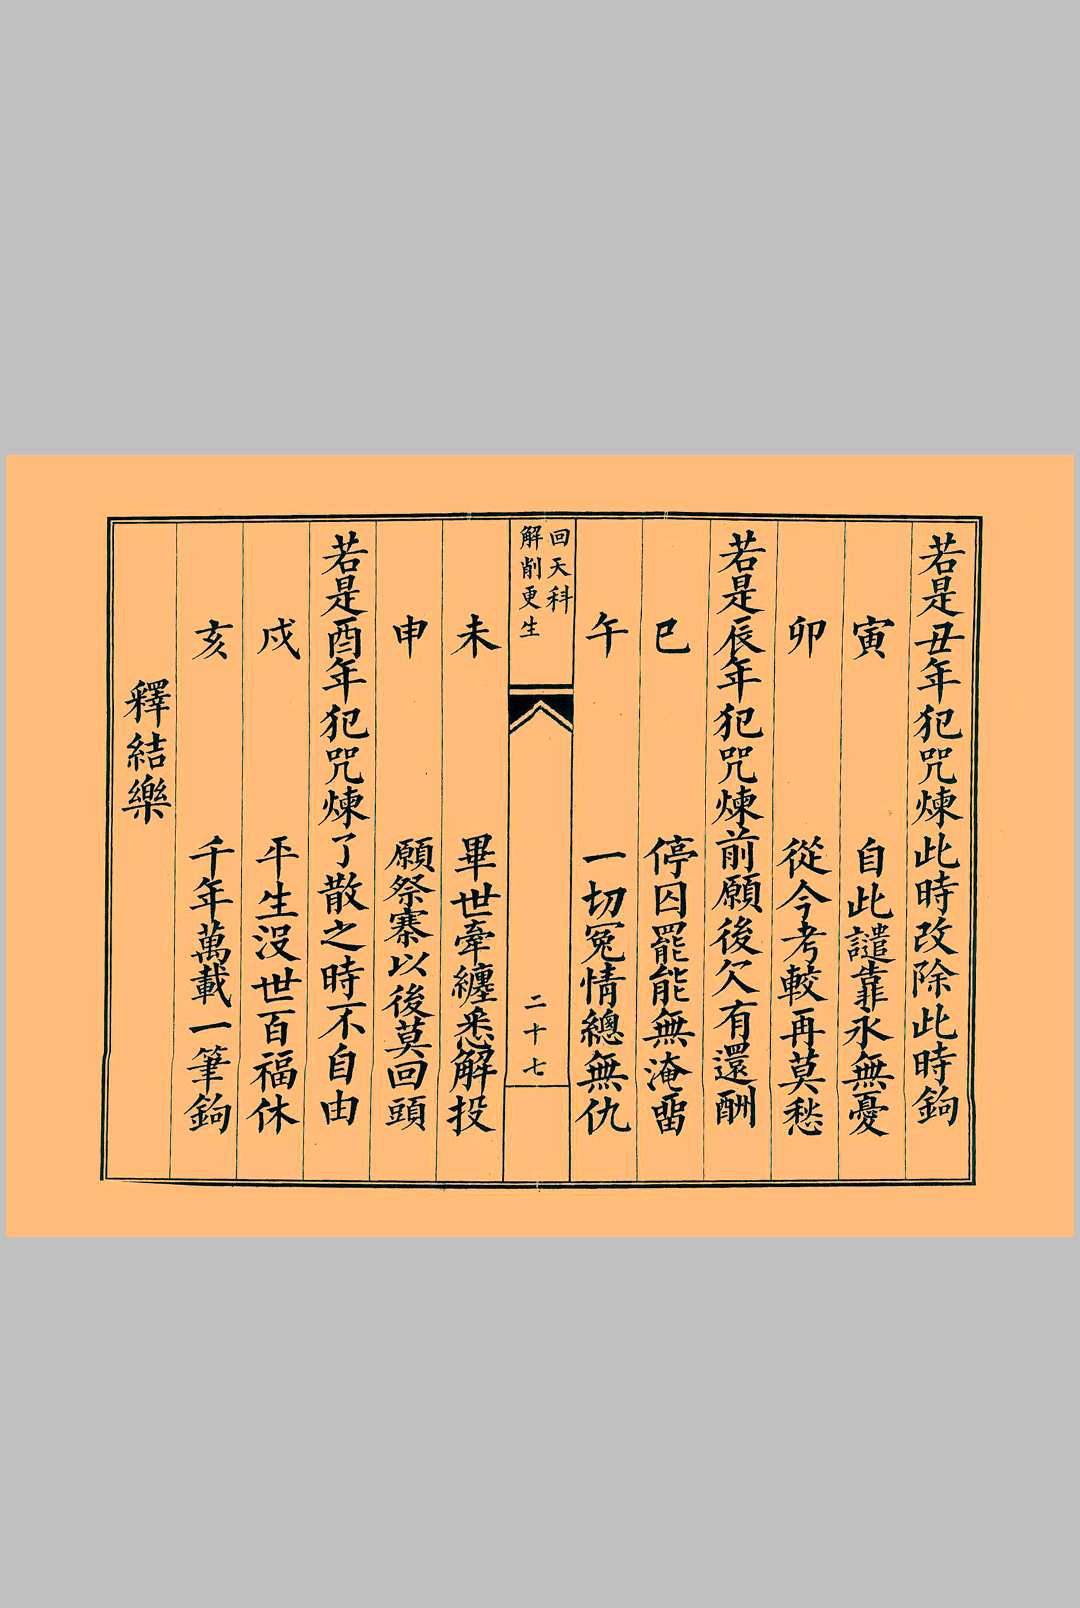 若是丑年犯咒煉此時改除此時鉤
寅 自此譴靠永無憂
卯 從今考較再莫愁
若是辰年犯咒煉前願後欠有還酬
巳 停囚罷能無淹畱
午 一切冤情總無仇
回天科
解削更生
二十七
未 畢世牽纏悉解投
申 願祭寨以後莫回頭
若是酉年犯咒煉了散之時不自由
戌 平生沒世百福休
亥 千年萬載一筆鉤
釋結樂